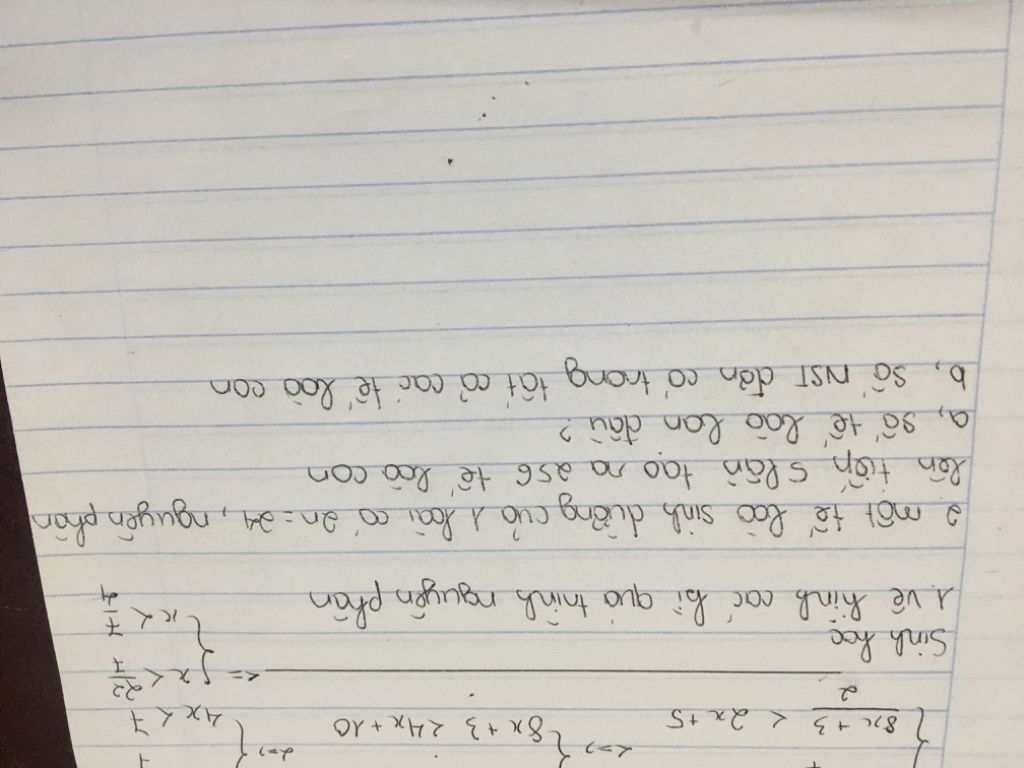 8x + 3 / 2 < 2x + 5 <=> { 8x + 3 < 4x + 10 <=> { 4x < 7
<= { x < 22/7
{ x < 7/4
Sinh học
1. Vẽ hình các kì quá trình nguyên phân
2 một tế bào sinh dưỡng của 1 loài có 2n = 24, nguyên phân
liên tiếp 5 lần tạo ra 256 tế bào con
a, số tế bào ban đầu?
b, số NST đơn có trong tất cả các tế bào con